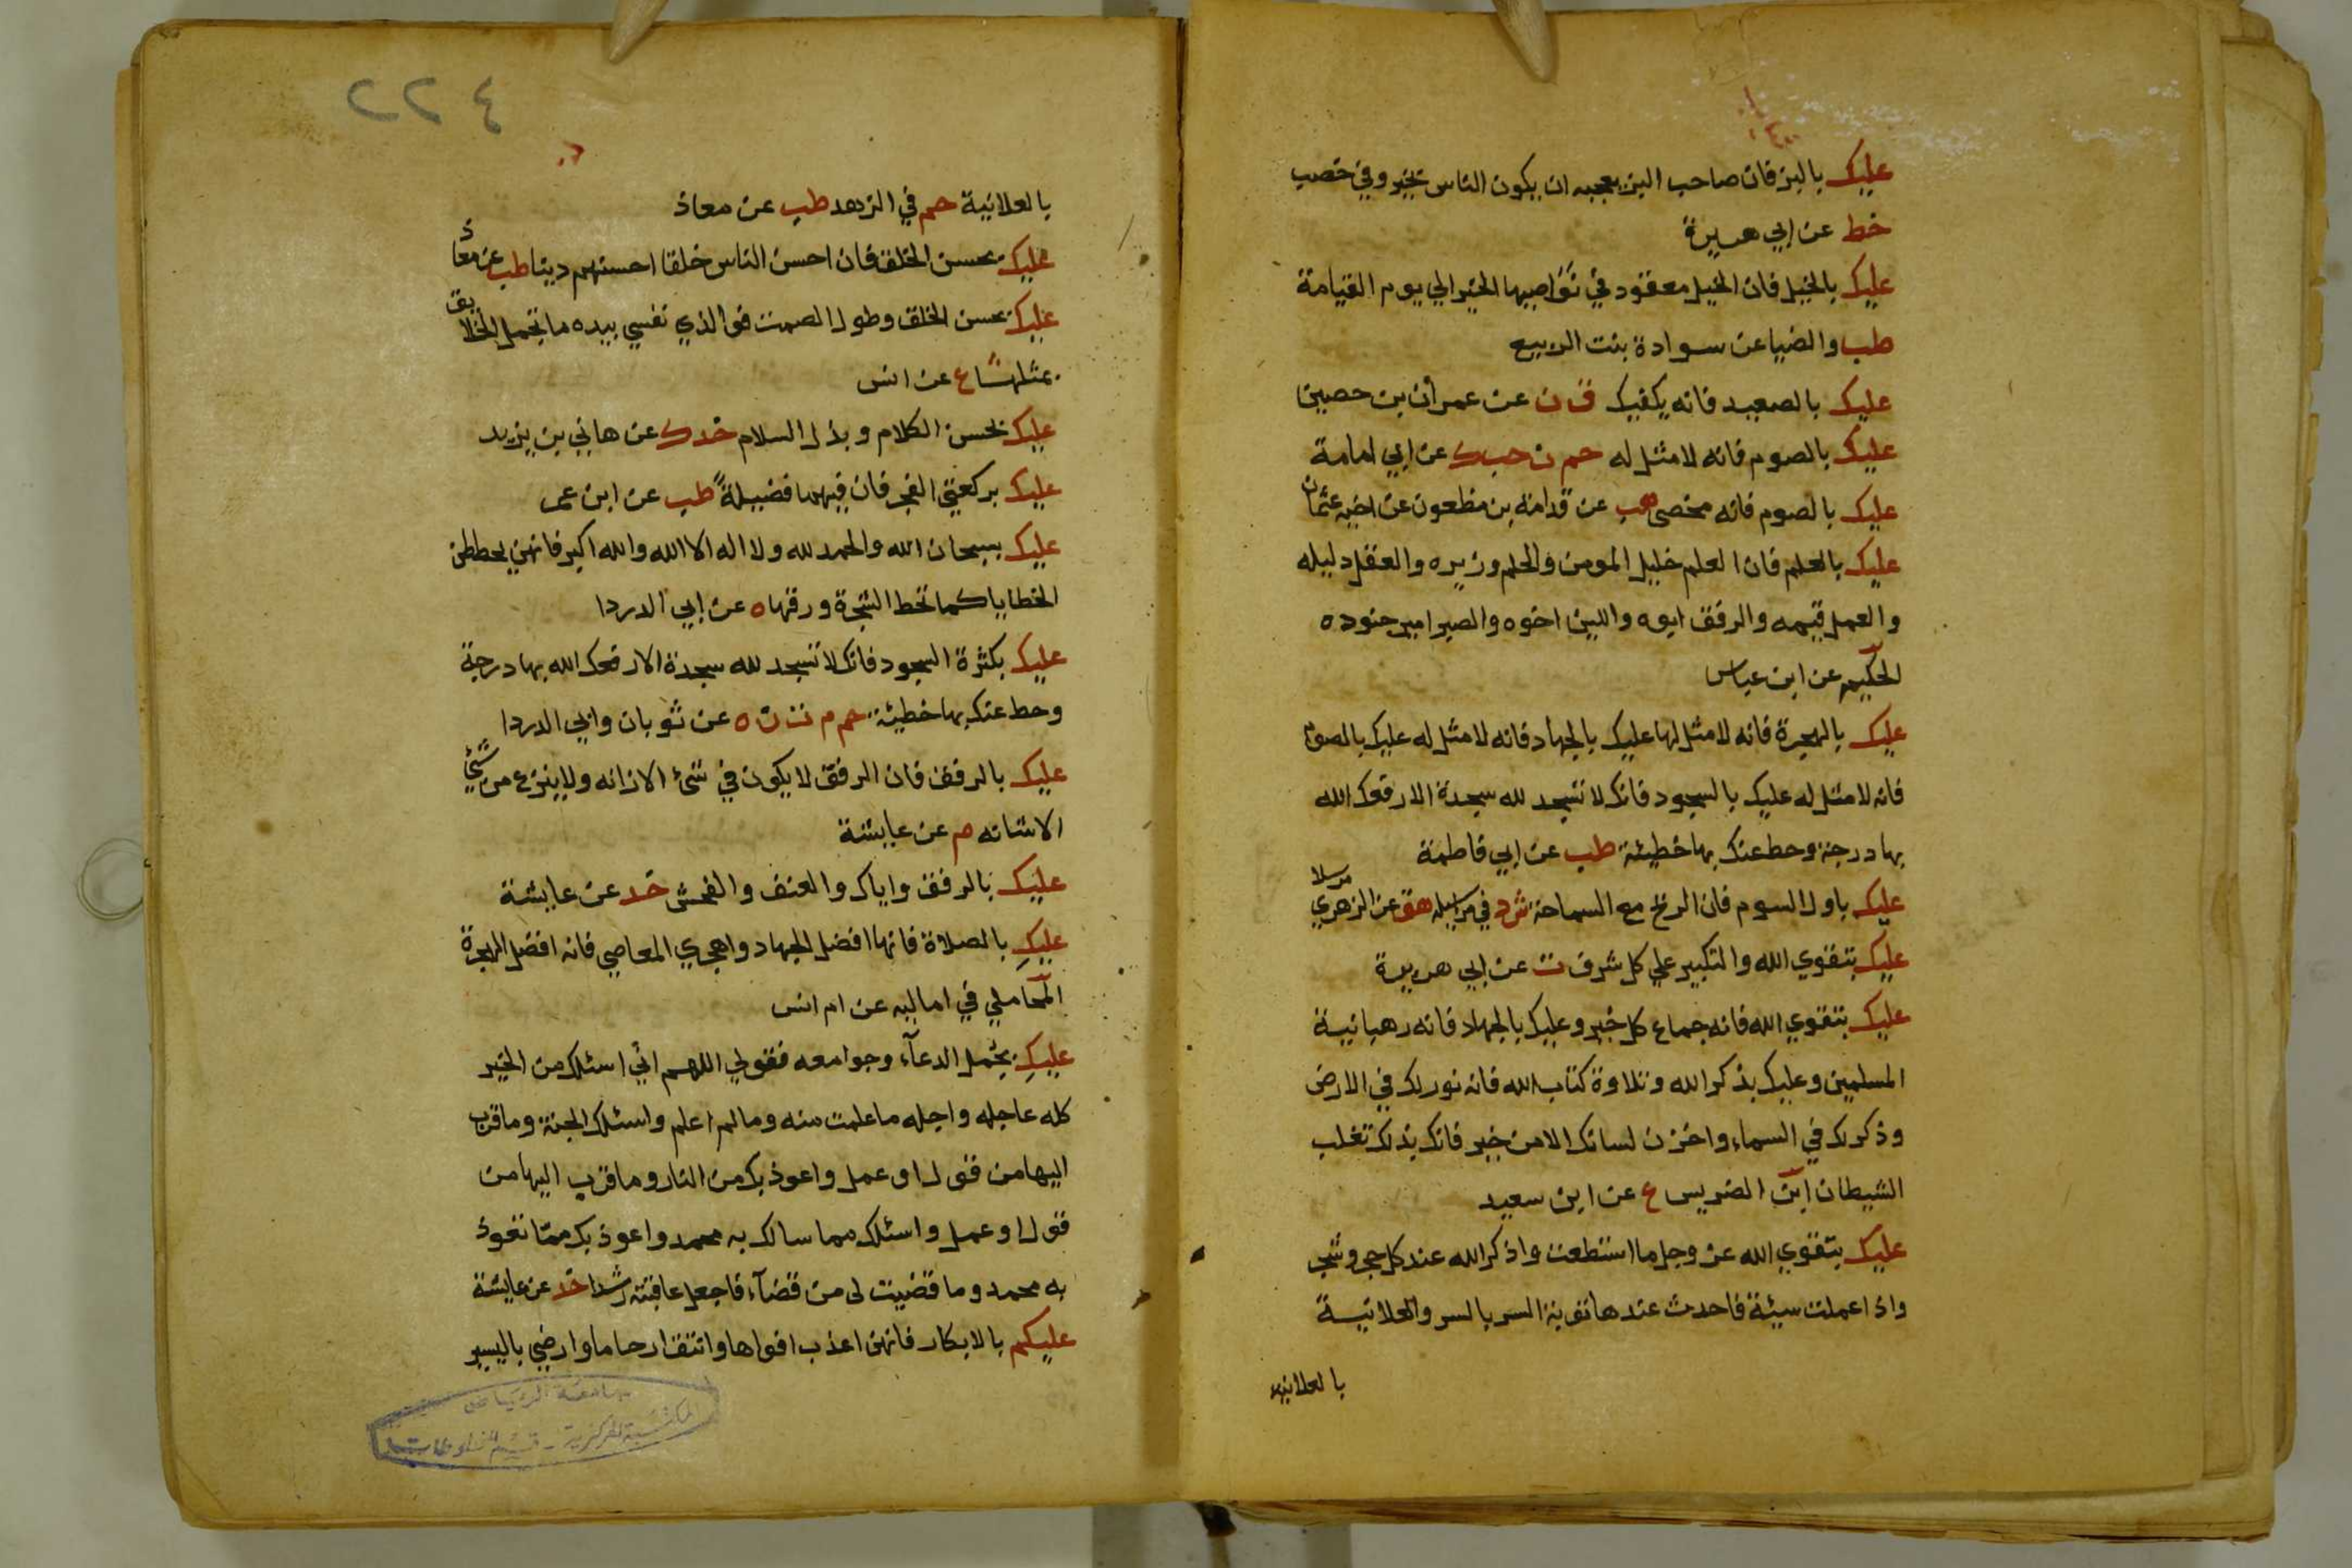 عليك بالبز فان صاحب البز يعجبه ان يكون الناس بخير وفي خصب
خط عن ابي هريرة
عليك بالخيل فان الخيل معقود في نواصيها الخير الي يوم القيامة
طب والضيا عن سوادة بنت الربيع
عليك بالصعيد فانه يكفيك ق ن عن عمران بن حصين
عليك بالصوم فانه لا مثل له حم ن حب ك عن ابي امامة
عليك بالصوم فانه مخصي هب عن قدامة بن مظعون عن اخيه عثمان
عليك بالعلم فان العلم خليل المومن والحلم وزيره والعقل دليله
والعمل قيمه والرفق ابوه واللين اخوه والصبر امير جنوده
الحكيم عن ابن عباس
عليك بالهجرة فانه لا مثل لها عليك بالجهاد فانه لا مثل له عليك بالصوم
فانه لا مثل له عليك بالسجود فانك لا تسجد لله سجدة الا رفعك الله
بها درجة وحط عنك بها خطيئة طب عن ابي فاطمة
عليك باول السوم فان الربح مع السماحة ش د في مراسيله هق عن الزهري مرسلا
عليك بتقوي الله والتكبير علي كل شرف ت عن ابي هريرة
عليك بتقوي الله فانه جماع كل خير وعليك بالجهاد فانه رهبانية
المسلمين وعليك بذكر الله وتلاوة كتاب الله فانه نور لك في الارض
وذكر لك في السماء واخزن لسانك الا من خير فانك بذلك تغلب
الشيطان ابن الضريس ع عن ابن سعيد
عليك بتقوي الله عز وجل ما استطعت واذكر الله عند كل حجر وشجر
واذا عملت سيئة فاحدث عندها توبة السر بالسر والعلانية
بالعلانية
٤٢٢
بالعلانية حم في الزهد طب عن معاذ
عليك بحسن الخلق فان احسن الناس خلقا احسنهم دينا طب عن معاذ
عليك بحسن الخلق وطول الصمت فوالذي نفسي بيده ما تجمل الخلايق
بمثلهما ع عن انس
عليك بحسن الكلام وبذل السلام خد ك عن هاني بن يزيد
عليك بركعتي الفجر فان فيهما فضيلة طب عن ابن عمر
عليك بسبحان الله والحمد لله ولا اله الا الله والله اكبر فانهن يحططن
الخطايا كما تحط الشجرة ورقها ه عن ابي الدردا
عليك بكثرة السجود فانك لا تسجد لله سجدة الا رفعك الله بها درجة
وحط عنك بها خطيئة حم م ت ن ه عن ثوبان وابي الدردا
عليك بالرفق فان الرفق لا يكون في شئ الا زانه ولا ينزع من شئ
الا شانه م عن عايشة
عليك بالرفق واياك والعنف والفحش خد عن عايشة
عليك بالصلاة فانها افضل الجهاد واهجري المعاصي فانه افضل الهجرة
المحاملي في اماليه عن ام انس
عليك بجمل الدعاء وجوامعه فقولي اللهم اني اسئلك من الخير
كله عاجله واجله ما علمت منه وما لم اعلم واسئلك الجنة وما قرب
اليها من قول او عمل واعوذ بك من النار وما قرب اليها من
قول او عمل واسئلك مما سالك به محمد واعوذ بك مما تعوذ
به محمد وما قضيت لي من قضاء فاجعل عاقبته رشدا خد عن عايشة
عليكم بالابكار فانهن اعذب افواها وانتق ارحاما وارضي باليسير
جامعة الرياض
المكتبة المركزية - قسم المخطوطات